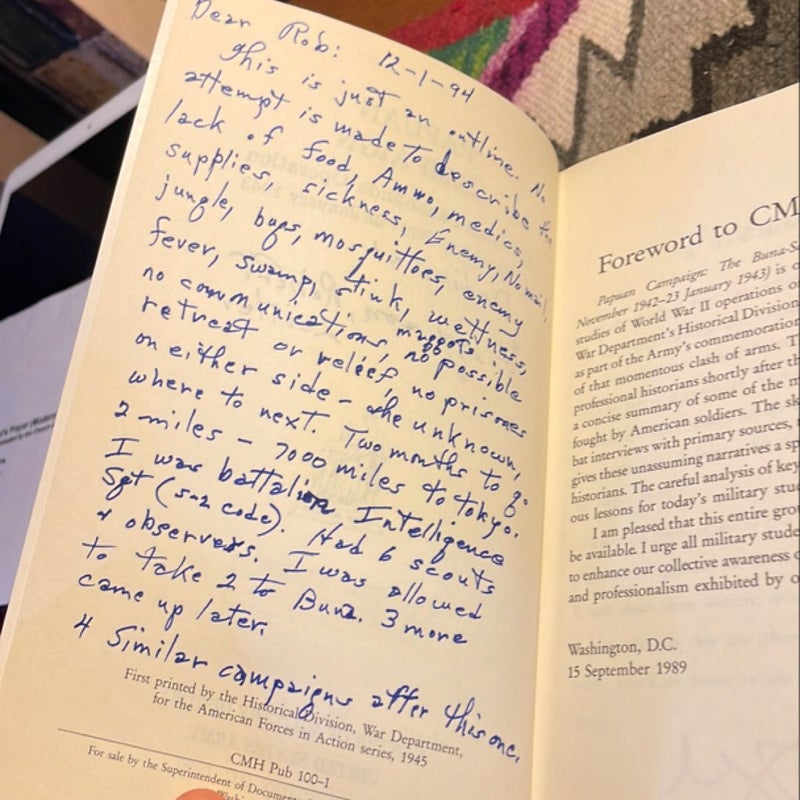 Dear Rob: 12-1-94
This is just an outline. No
attempt is made to describe the
lack of food, Ammo, medics,
supplies, sickness, Enemy, No mail,
jungle, bugs, mosquittoes, enemy
fever, swamp, stink, wettness,
no communications, maggots, no possible
retreat or releef, no prisones
on either side - the unknown,
where to next. Two months to go
2 miles - 7000 miles to tokyo.
I was battalion Intelligence
Sgt (S-2 code). Had 6 scouts
& observers. I was allowed
to take 2 to Buna. 3 more
came up later.
4 Similar campaigns after this one.
First printed by the Historical Division, War Department,
for the American Forces in Action series, 1945
CMH Pub 100-1
For sale by the Superintendent of
Foreword to CM
Papuan Campaign: The Buna-S
November 1942-23 January 1943) is
studies of World War II operations o
War Department's Historical Division
as part of the Army's commemoration
of that momentous clash of arms. T
professional historians shortly after th
a concise summary of some of the m
fought by American soldiers. The sk
bat interviews with primary sources,
gives these unassuming narratives a sp
historians. The careful analysis of key
ous lessons for today's military stu
I am pleased that this entire gro
be available. I urge all military stude
to enhance our collective awareness o
and professionalism exhibited by o
Washington, D.C.
15 September 1989